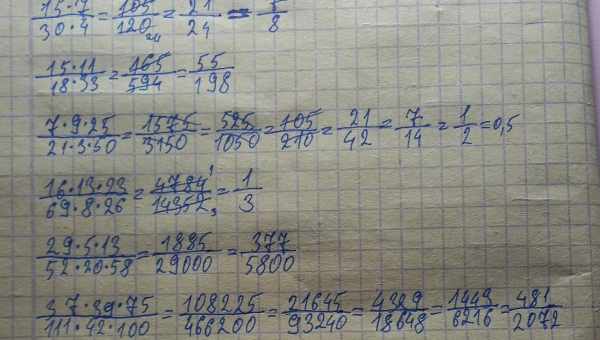 15·7/30·4 = 105/120 = 21/24 = 7/8
15·11/18·33 = 165/594 = 55/198
7·9·25/21·3·50 = 1575/3150 = 525/1050 = 105/210 = 21/42 = 7/14 = 1/2 = 0,5
16·13·23/69·8·26 = 4784/14352 = 1/3
29·5·13/52·20·58 = 1885/29000 = 377/5800
37·39·75/111·42·100 = 108225/466200 = 21645/93240 = 4329/18648 = 1443/6216 = 481/2072